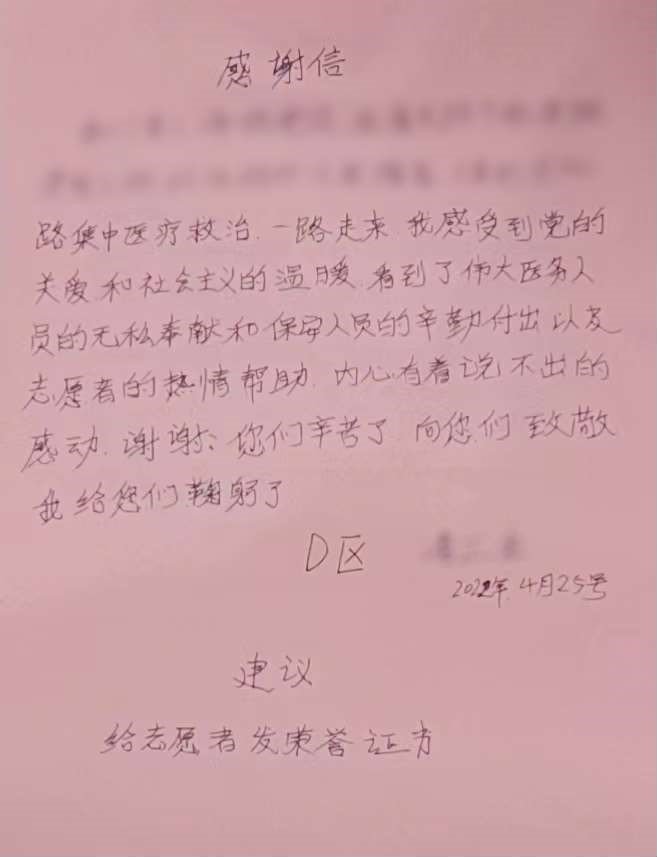 感谢信
路集中医疗救治.一路走来.我感受到党的
关爱.和社会主义的温暖.看到了伟大医务人
员的无私奉献和保安人员的辛勤付出以及
志愿者的热情帮助.内心有着说不出的
感动.谢谢:您们辛苦了 向您们致敬
我给您们鞠躬了
D区
2022年.4月25号
建议
给志愿者发荣誉证书